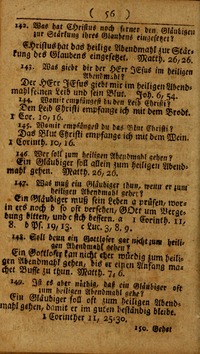 ( 56 )
142. Was hat Christus noch ferner den Gläubigen
zur Stärkung ihres Glaubens eingesetzet?
Christus hat das heilige Abendmahl zur Stär-
kung des Glaubens eingesetzet. Matth. 26, 26.
143. Was giebt dir der HErr JEsus im heiligen
Abendmahl?
Der HErr JEsus giebt mir im heiligen Abend-
mahl seinen Leib und sein Blut. Joh. 6, 54.
144. Womit empfängest du den Leib Christi?
Den Leib Christi empfange ich mit dem Brodt.
1 Cor. 10, 16.
145. Womit empfängest du das Blut Christi?
Das Blut Christi empfange ich mit dem Wein.
1 Corinth. 10, 16.
146. Wer soll zum heiligen Abendmahl gehen?
Ein Gläubiger soll allein zum heiligen Abend-
mahl gehen. Matth. 26, 26.
147. Was muß ein Gläubiger thun, wenn er zum
heiligen Abendmahl gehet?
Ein Gläubiger muß sein Leben prüfen, wor-
in ers noch versehen, GOtt um Verge-
bung bitten, und sich bessern. 1 Corinth. 11,
8. Pf. 19, 13. Luc. 3, 8. 9.
148. Soll denn ein Gottloser gar nicht zum heili-
gen Abendmahl gehen?
Ein Gottloser kan nicht eher würdig zum heili-
gen Abendmahl gehen, bis er einen Anfang ma-
chet Busse zu thun. Matth. 7, 6.
149. Ist es aber nöthig, daß ein Gläubiger oft
zum heiligen Abendmahl gehe?
Ein Gläubiger soll oft zum heiligen Abend-
mahl gehen, damit er im guten beständig bleibe.
1 Corinther 11, 25-30.
150. Gehet